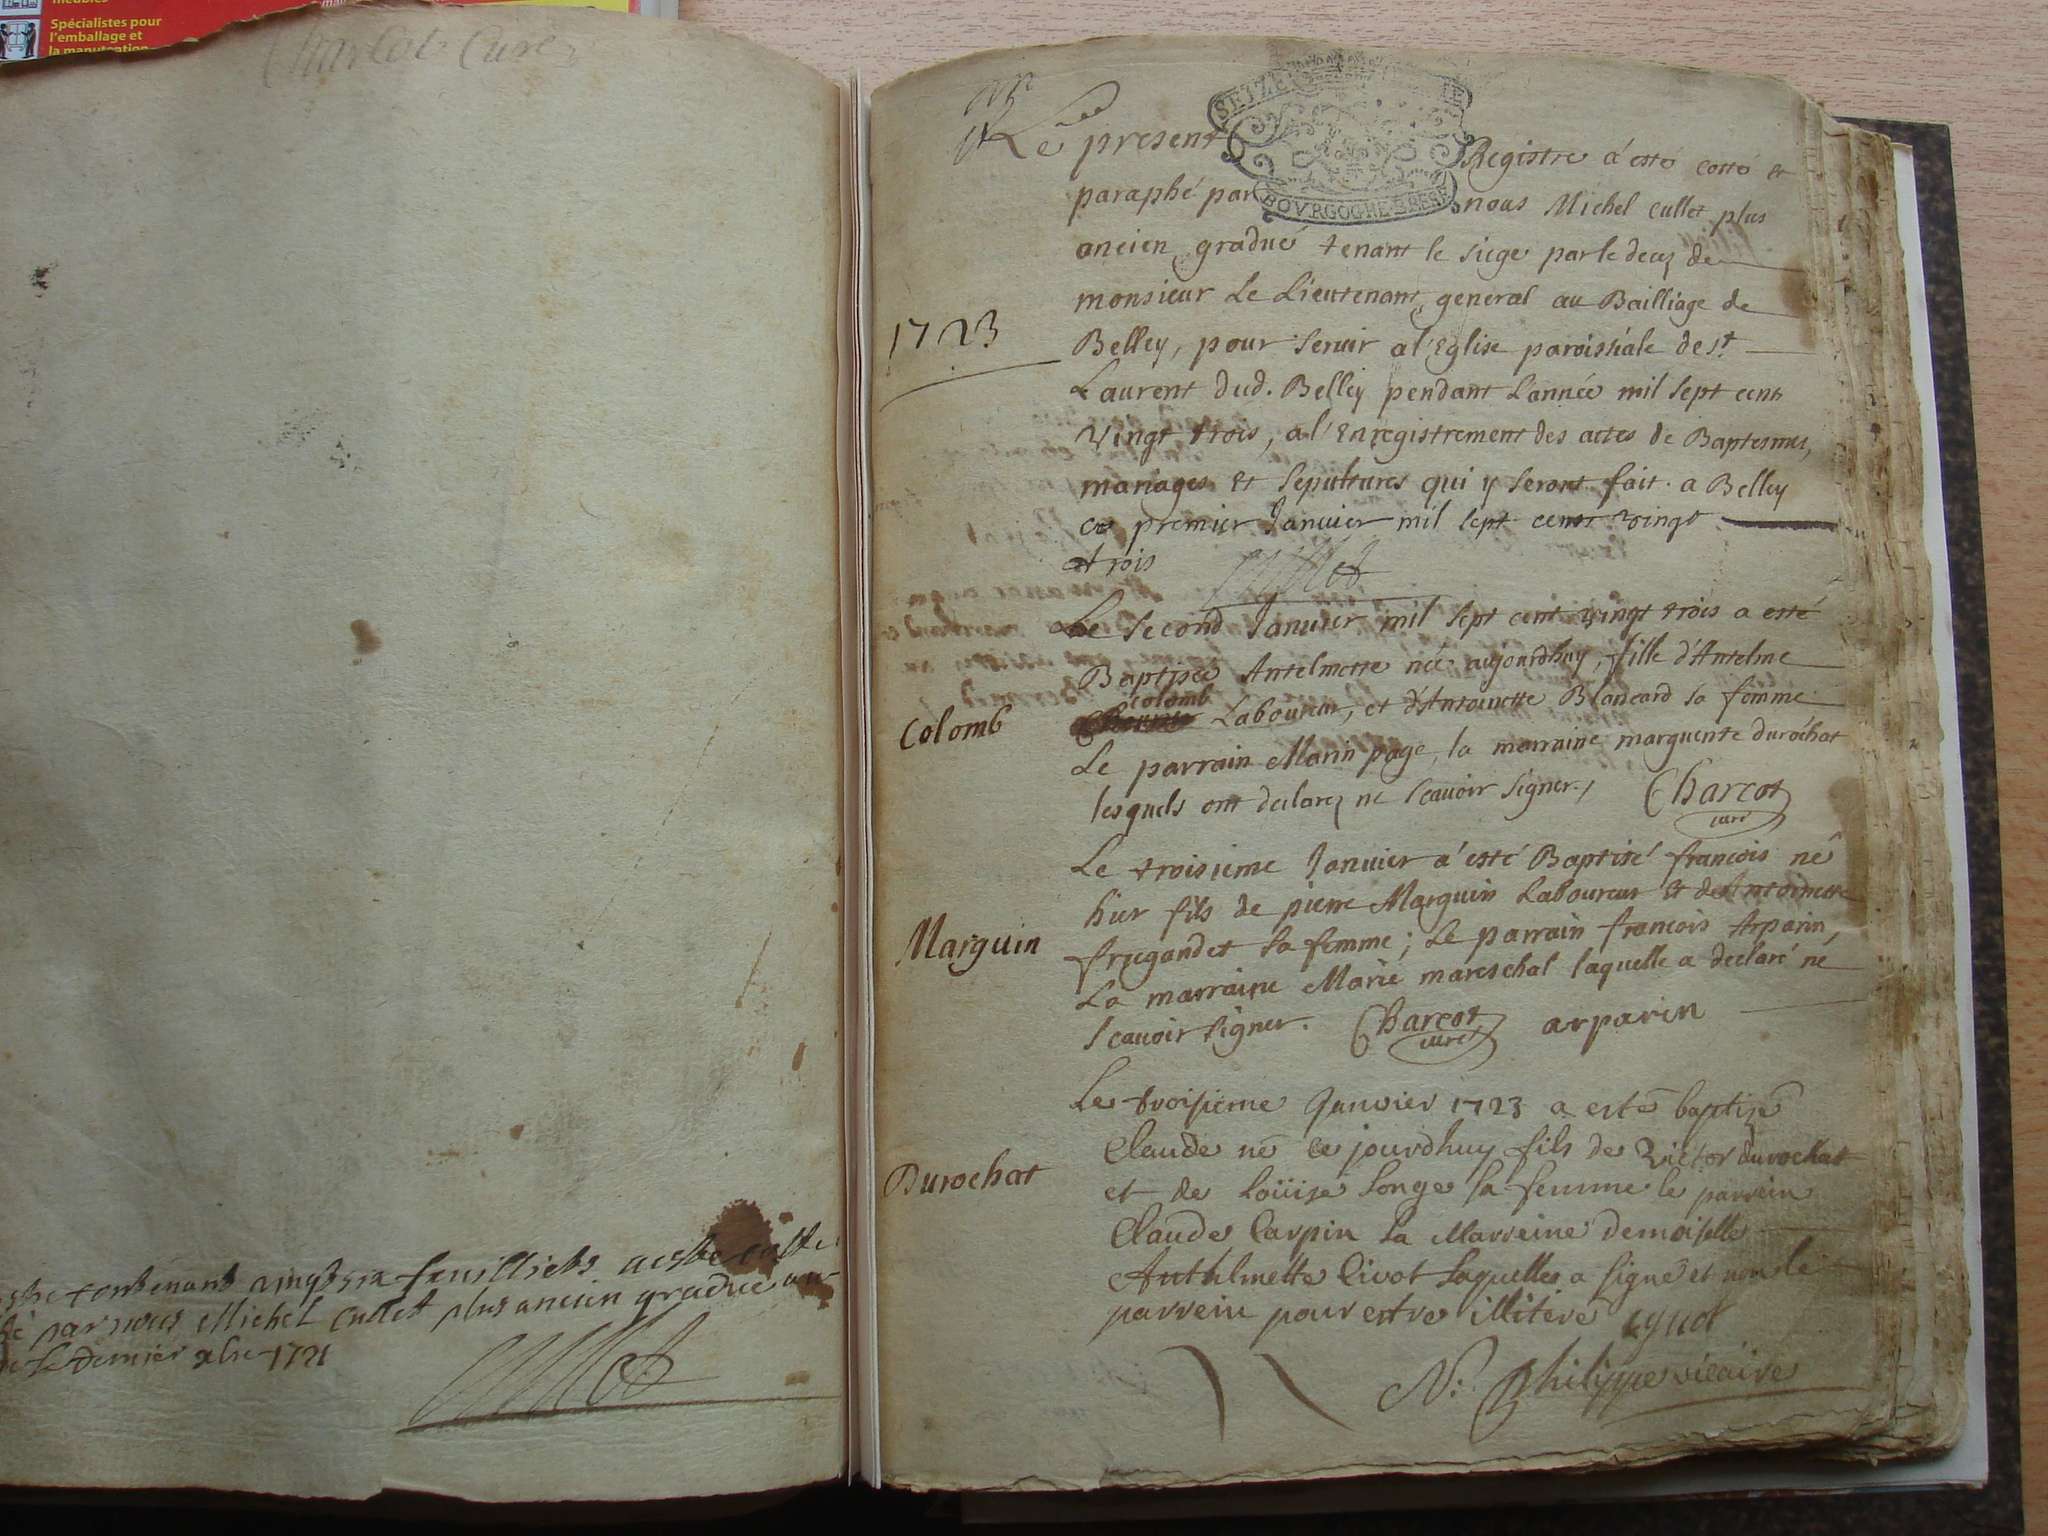 meubles
Spécialistes pour
l'emballage et
la manutention
Charcot Curé
contenant vingt six feuilliets a esté cotté
par nous Michel Cullet plus ancien gradué au
le dernier xbre 1721
Cullet
SEIZE
BOVRGOGNE BRESSE
1723
Le present Registre a esté cotté et
paraphé par nous Michel Cullet plus
ancien gradué tenant le siege par le decez de
monsieur Le Lieutenant general au Bailliage de
Belley, pour servir a l'Eglise paroissiale de St
Laurent dud. Belley pendant L'année mil sept cent
vingt trois, a l'Enregistrement des actes de Baptesmes,
mariages et sepultures qui y seront fait. a Belley
ce premier Janvier mil sept cent vingt
trois Cullet
Le second Janvier mil sept cent vingt trois a esté
Baptisée Antelmette née aujourdhuy, fille d'Antelme
Colomb
colomb Laboureur, et d'Antoinette Blancard sa femme
Le parrain Marin page, la marraine marguerite durochat
lesquels ont declarez ne scavoir signer. Charcot
curé
Le troisieme Janvier a esté Baptisé françois né
hier fils de pierre Marguin Laboureur et de Antoinette
Marguin
frugandet sa femme; Le parrain françois Arparin,
La marraine Marie mareschal laquelle a declaré ne
scavoir signer. Charcot arparin
curé
Le troisieme Janvier 1723 a esté baptizé
Claude né ce jourdhuy fils de Victor durochat
Durochat
et de Loüise Longe sa femme le parrein
Claude Carpin La Marreine demoiselle
Anthelmette Civot Laquelle a signé et non le
parrein pour estre illitéré
N. Philippe vicaire